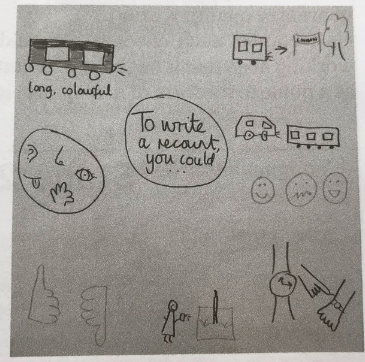 long, colourful
To write
a recount,
you could
...